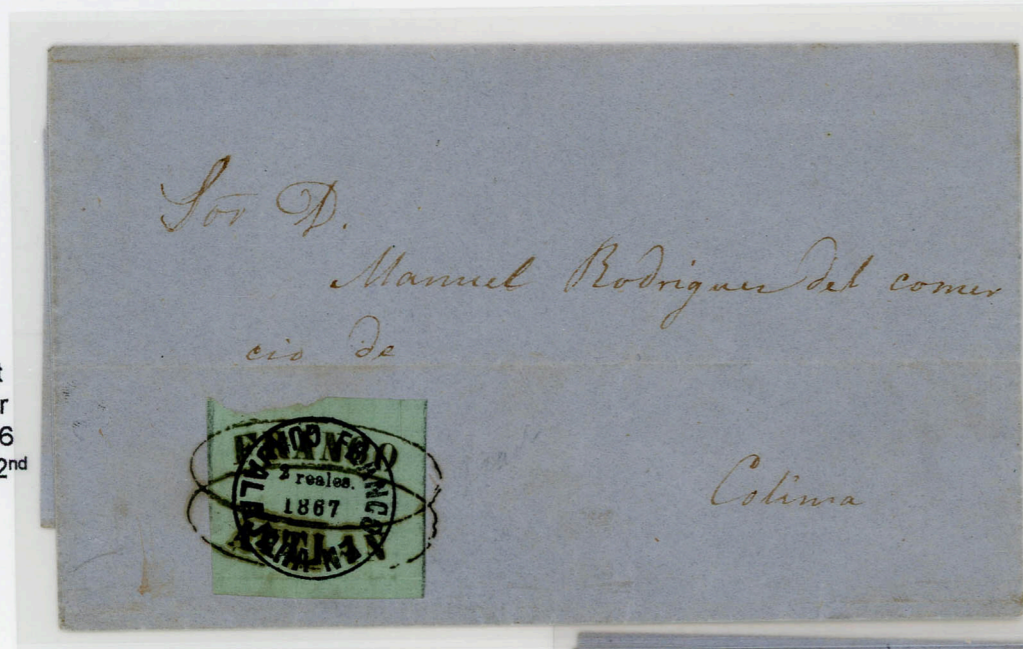 Sor D.
Manuel Rodriguez del comer
cio de
t
r
6
2nd
FRANCO
2 reales.
1867
Colima